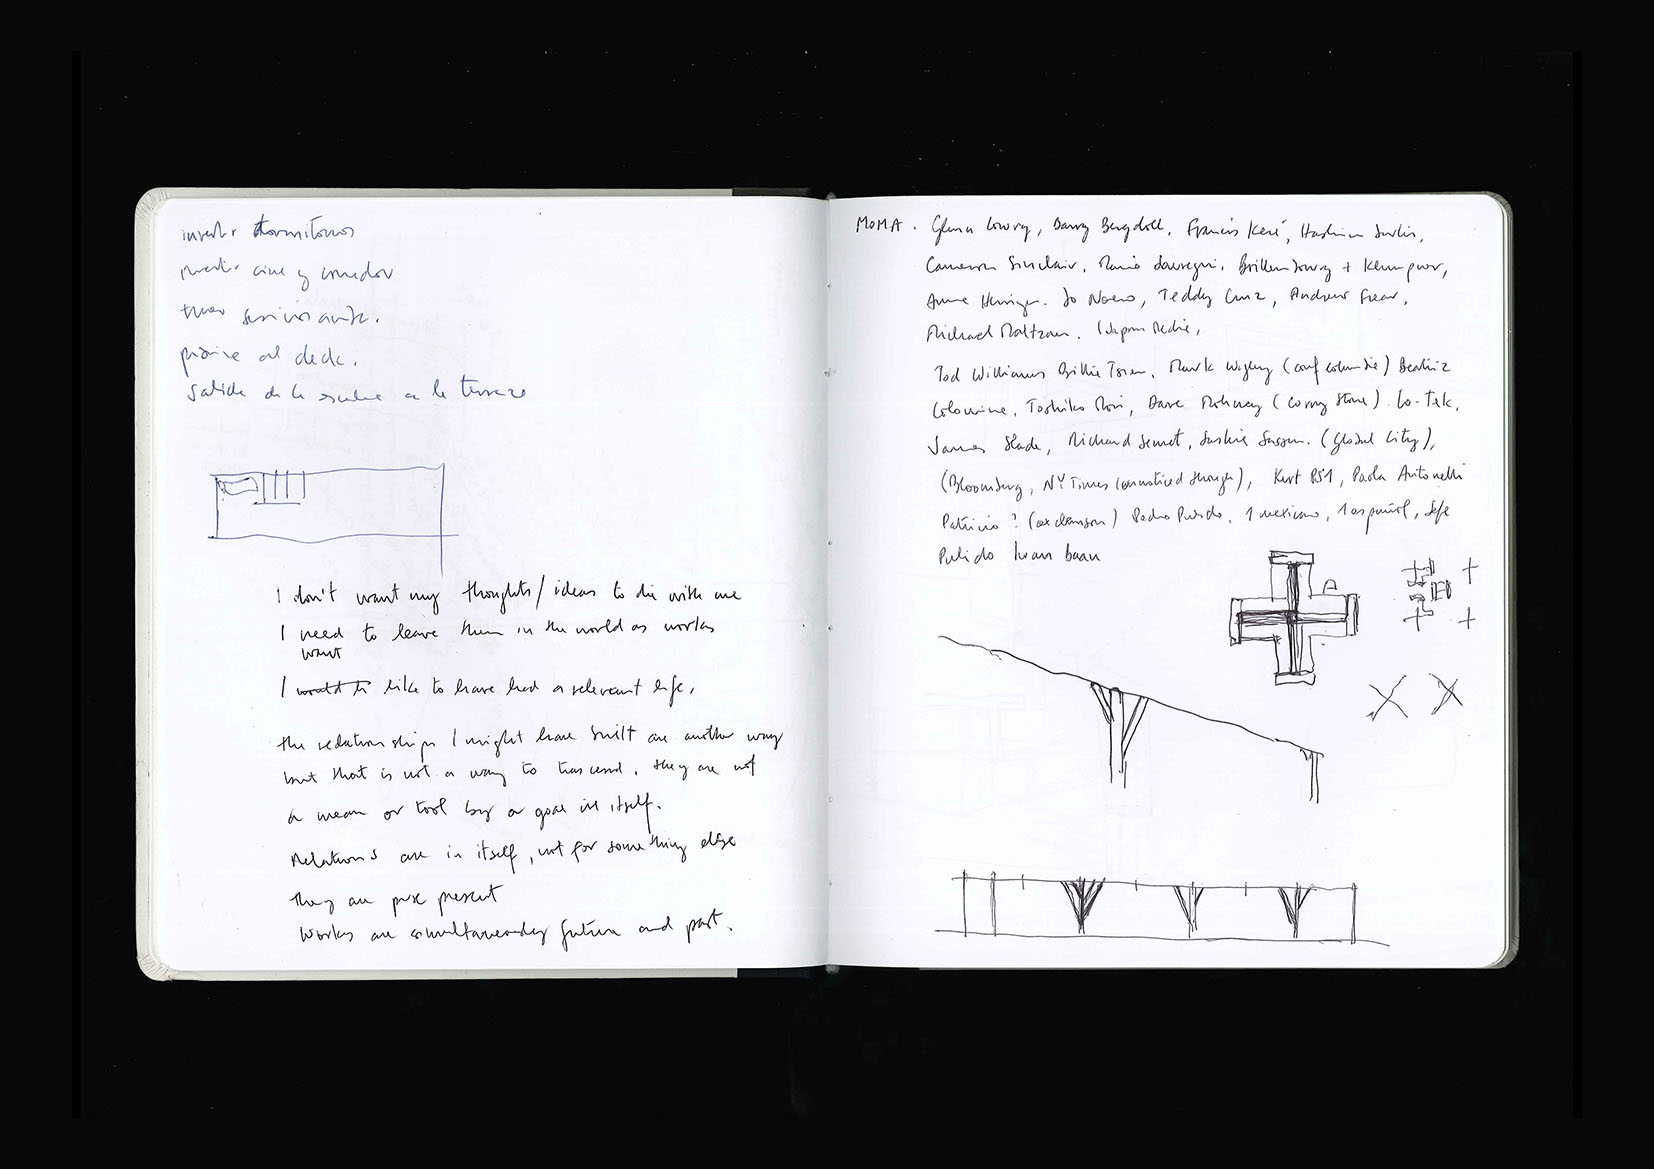 invertir dormitorios
cine y comedor
piscina al deck.
salida de la escalera a la terraza
I don't want my thoughts/ideas to die with me
I need to leave them in the world as works
want
I would li like to have had a relevant life,
the relationships I might have built are another way
but that is not a way to trascend. they are not
a mean or tool by a goal in itself.
Relations are in itself, not for something else
they are pure present
Works are simultaneously future and past.
MoMA. Glenn Lowry, Barry Bergdoll, Francis Keré, Hashim Sarkis,
Cameron Sinclair, Mario Jauregui, Brillembourg + Klumpner,
Anna Heringer. Jo Noero, Teddy Cruz, Andrew Frear,
Michael Maltzan.
Tod Williams Billie Tsien, Mark Wigley (conf columbia) Beatriz
Colomina, Toshiko Mori, Lo-Tek,
James Slade, Richard Sennet, Saskia Sassen. (Global City),
(Bloomberg, NY Times (unnoticed though), Kurt PS1, Paola Antonelli
Patricio ? Pedro Pulido, 1 mexicano, 1 español, Jefe
Pulido Iwan baan